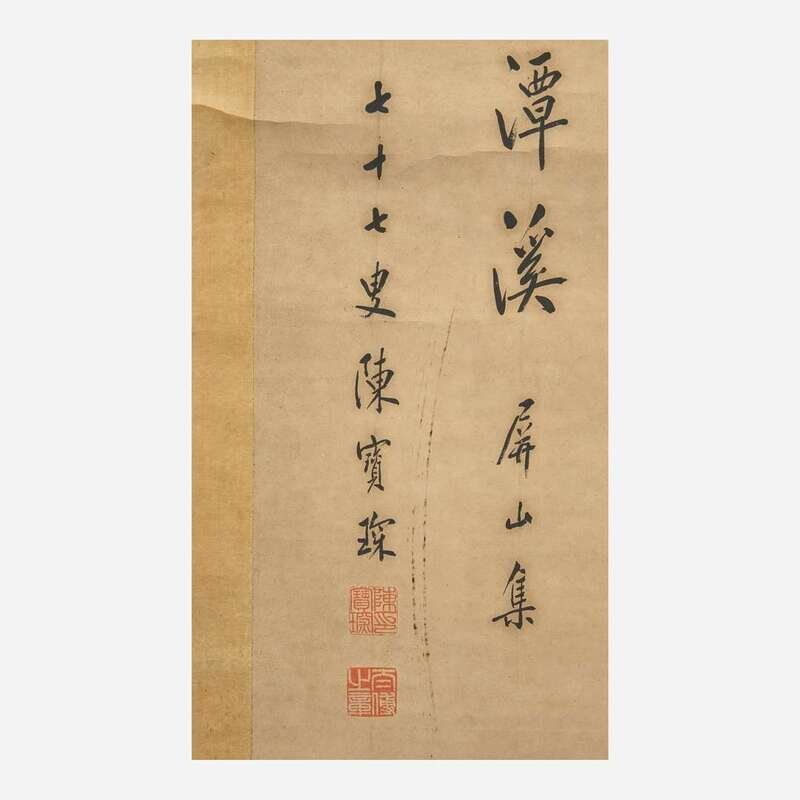 潭溪 屏山集
七十七叟陳寶琛
陳寶琛印
太傅之章